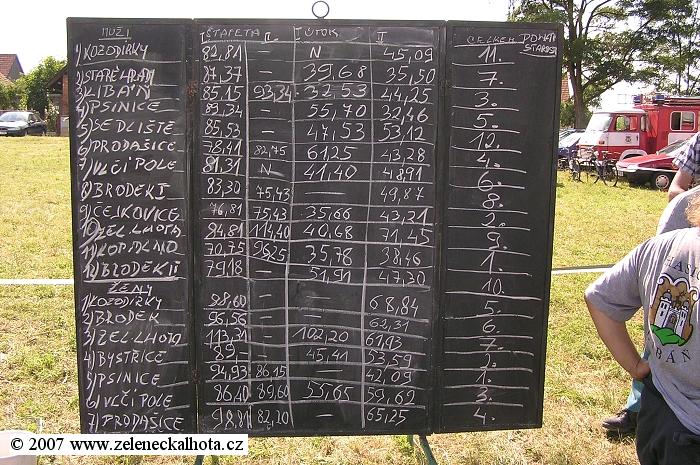 MUŽI ŠTAFETA II ÚTOK II CELKEM POHÁR STAROSTY
1) KOZODÍRKY 82,81 — N 45,09 11.
2) STARÉ HRADY 87,37 — 39,68 35,50 7.
3) LIBÁŇ 85,15 93,34 32,53 44,25 3.
4) PSINICE 89,34 — 55,70 32,46 5.
5) SEDLIŠTĚ 85,53 — 47,53 53,12 12.
6) PRODAŠICE 78,41 82,75 61,25 43,28 4.
7) VLČÍ POLE 81,31 N 41,40 48,91 6.
8) BRODEK I 83,30 75,43 — 49,87 8.
9) ČEJKOVICE 76,81 75,43 35,66 43,21 2.
10) ZEL. LHOTA 94,81 114,40 40,68 71,45 9.
11) KOPIDLNO 70,75 96,25 35,78 38,46 1.
12) BRODEK II 79,18 — 51,91 47,30 10.
ŽENY
1) KOZODÍRKY 98,60 — — 68,84 5.
2) BRODEK 96,56 — — 62,31 6.
3) ZEL. LHOTA 113,31 — 102,20 61,93 7.
4) BYSTŘICE 89,- — 45,41 53,59 2.
5) PSINICE 94,93 86,15 — 42,09 1.
6) VLČÍ POLE 86,40 89,60 55,65 59,62 3.
7) PRODAŠICE 98,81 82,20 — 65,25 4.
© 2007 www.zeleneckalhota.cz